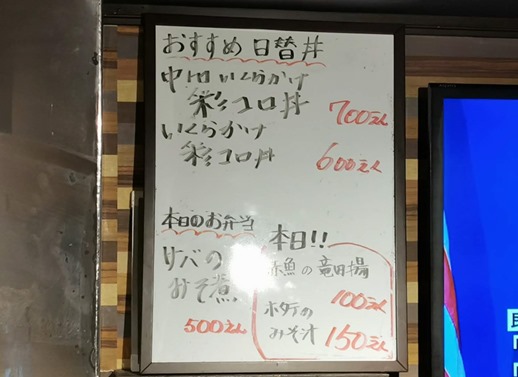 おすすめ 日替丼
中トロいくらかけ
彩コロ丼 700えん
いくらかけ
彩コロ丼 600えん
本日のお弁当
サバの
みそ煮
500えん
本日!!
赤魚の竜田揚
100えん
ホタテの
みそ汁 150えん